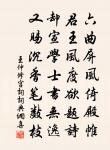 六曲屏風倚殿帷
君王風度欲題詩
却宣學士書無逸
又賜沉香筆數枝
王仲修宮詞詩詞典網